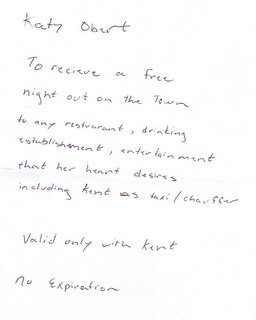 Katy Obert
To recieve a free
night out on the Town
to any restuarant, drinking
establishment, entertainment
that her heart desires
including Kent as taxi/chauffer
Valid only with Kent
no Expiration